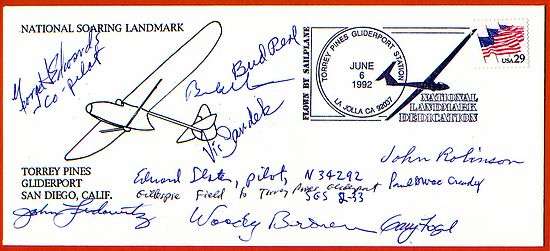 NATIONAL SOARING LANDMARK
Forrest Edwards
CO-pilot
Bud Perl
Vic Sandek
FLOWN BY SAILPLANE
TORREY PINES GLIDERPORT STATION
JUNE
6
1992
LA JOLLA CA 92037
USA 29
NATIONAL
LANDMARK
DEDICATION
TORREY PINES
GLIDERPORT
SAN DIEGO, CALIF.
John Robinson
Edward Slater, pilot, N34292
Gillespie Field to Torrey Pines Gliderport
SGS 2-33
Woody Brown
Gary Fogel